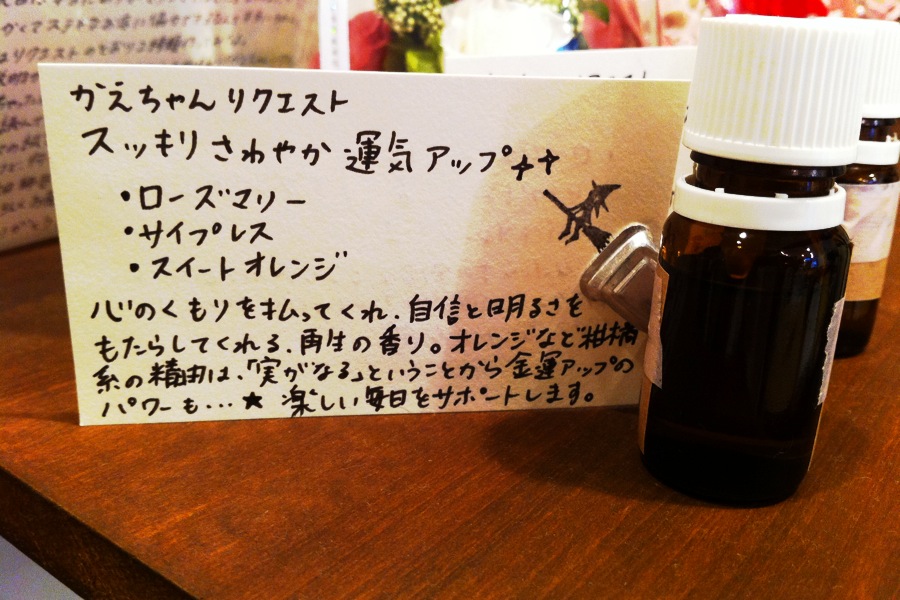 かえちゃんリクエスト
スッキリさわやか運気アップ++
・ローズマリー
・サイプレス
・スイートオレンジ
心のくもりを払ってくれ、自信と明るさを
もたらしてくれる、再生の香り。オレンジなど柑橘
系の精油は、「実がなる」ということから金運アップの
パワーも…★ 楽しい毎日をサポートします。